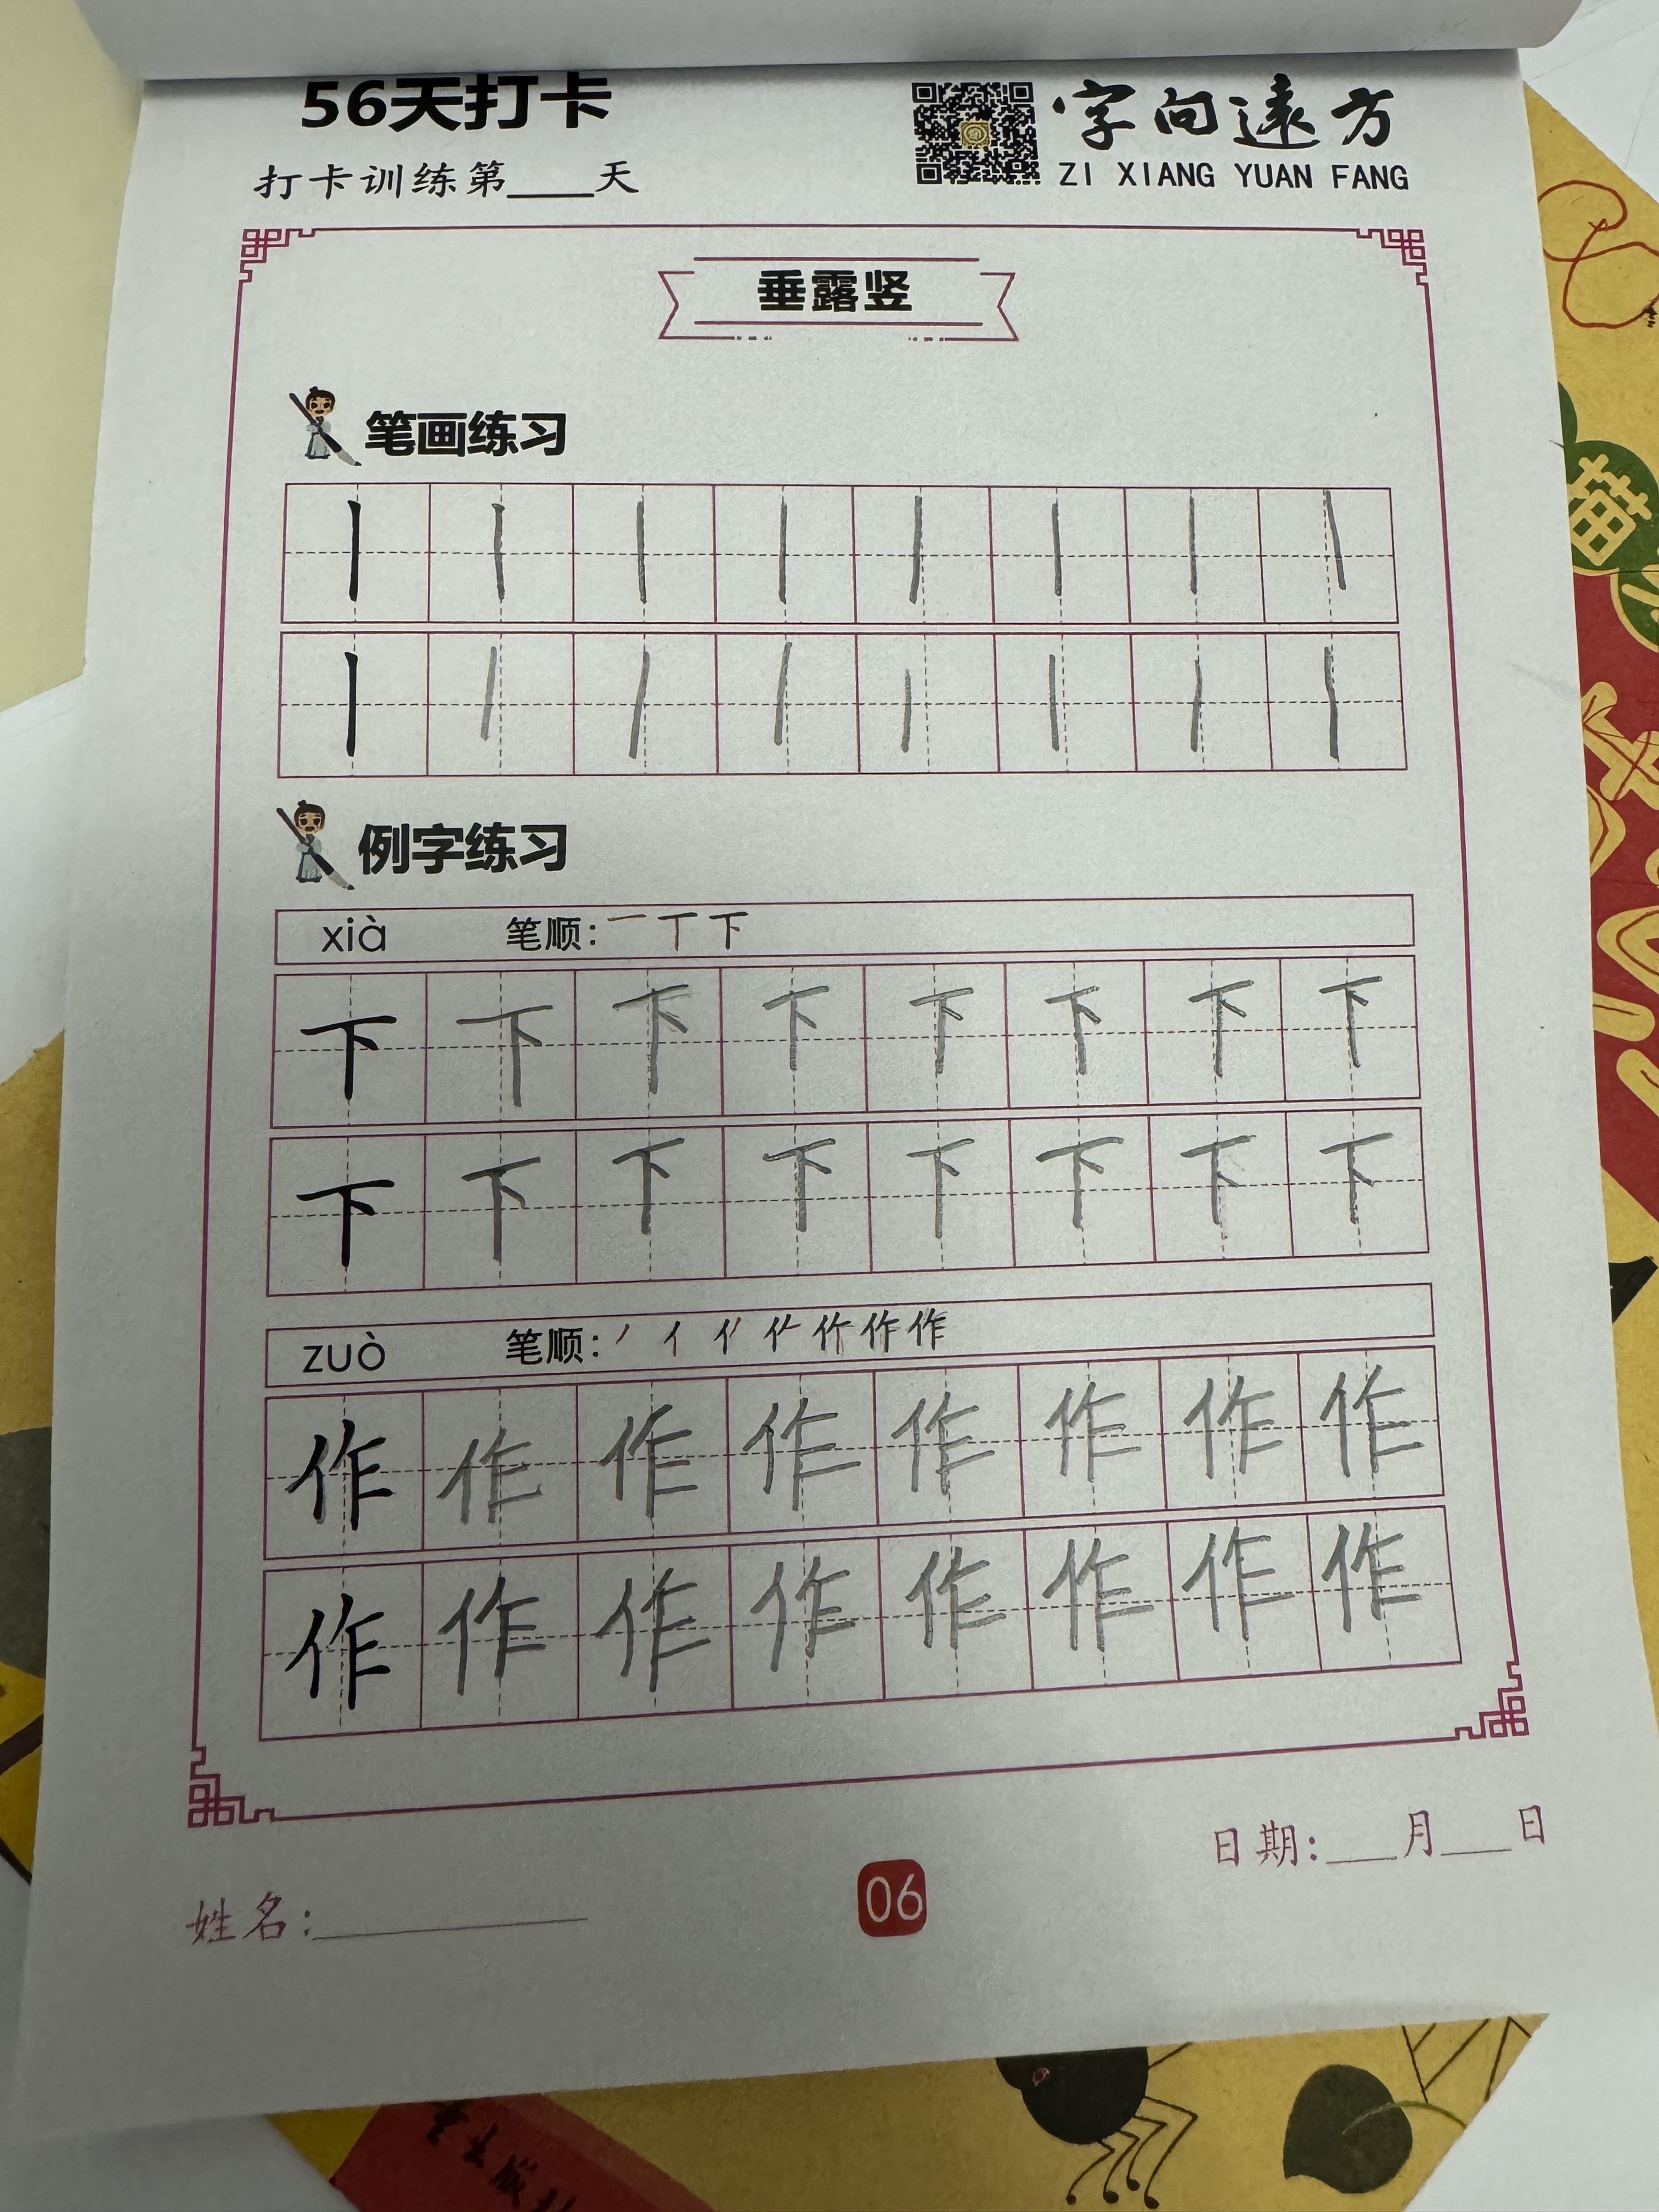 56天打卡
字向遠方
打卡训练第____天
ZI XIANG YUAN FANG
垂露竖
笔画练习
丨 丨 丨 丨 丨 丨 丨 丨
丨 丨 丨 丨 丨 丨 丨 丨
例字练习
xià 笔顺：一 丅 下
下 下 下 下 下 下 下 下
下 下 下 下 下 下 下 下
zuò 笔顺：
作 作 作 作 作 作 作 作
作 作 作 作 作 作 作 作
日期：___月___日
姓名：____________
06
猫